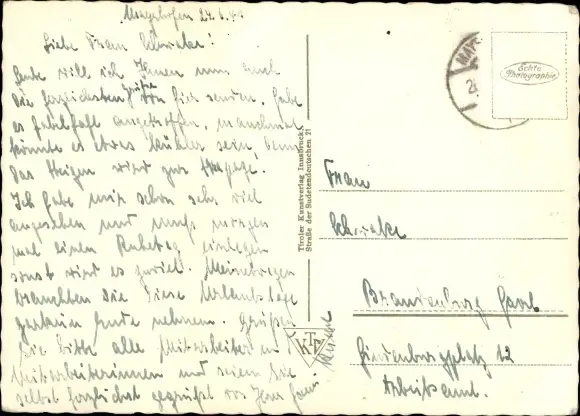 Mayrhofen 24.6.
Liebe Frau Schwake!
Heute will ich Ihnen nun auch
die herzlichsten Grüße von hier senden. Habe
es fabelhaft angetroffen, manchmal
könnte es etwas kühler sein, denn
das Steigen wird zur Strapaze.
Ich habe mir schon sehr viel
angesehen und muß morgen
mal einen Ruhetag einlegen
sonst wird es zuviel. Meinetwegen
brauchten die diese Urlaubstage
garkein Ende nehmen. Grüßen
Sie bitte alle Mitarbeiter u.
Mitarbeiterinnen und seien Sie
selbst herzlichst gegrüßt von Ihrer
Tiroler Kunstverlag Innsbruck,
Straße der Sudetendeutschen 21
KTI
MAY
2
Echte
Photographie
Frau
Schwake
Brandenburg Havel
Hindenburgplatz 12
Arbeitsamt.